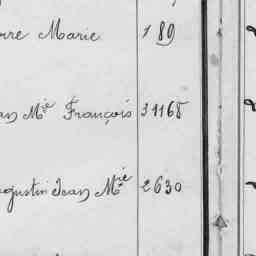 rre Marie 189
an Mie François 31168
ugustin Jean Mie 2630